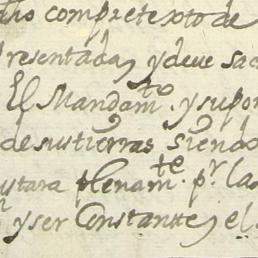 tho compretexto de
resentada, y deve sac
El Mandam.to y supon
de sus tierras siendo
ustara plenam.te p.r la
y ser Constante, el